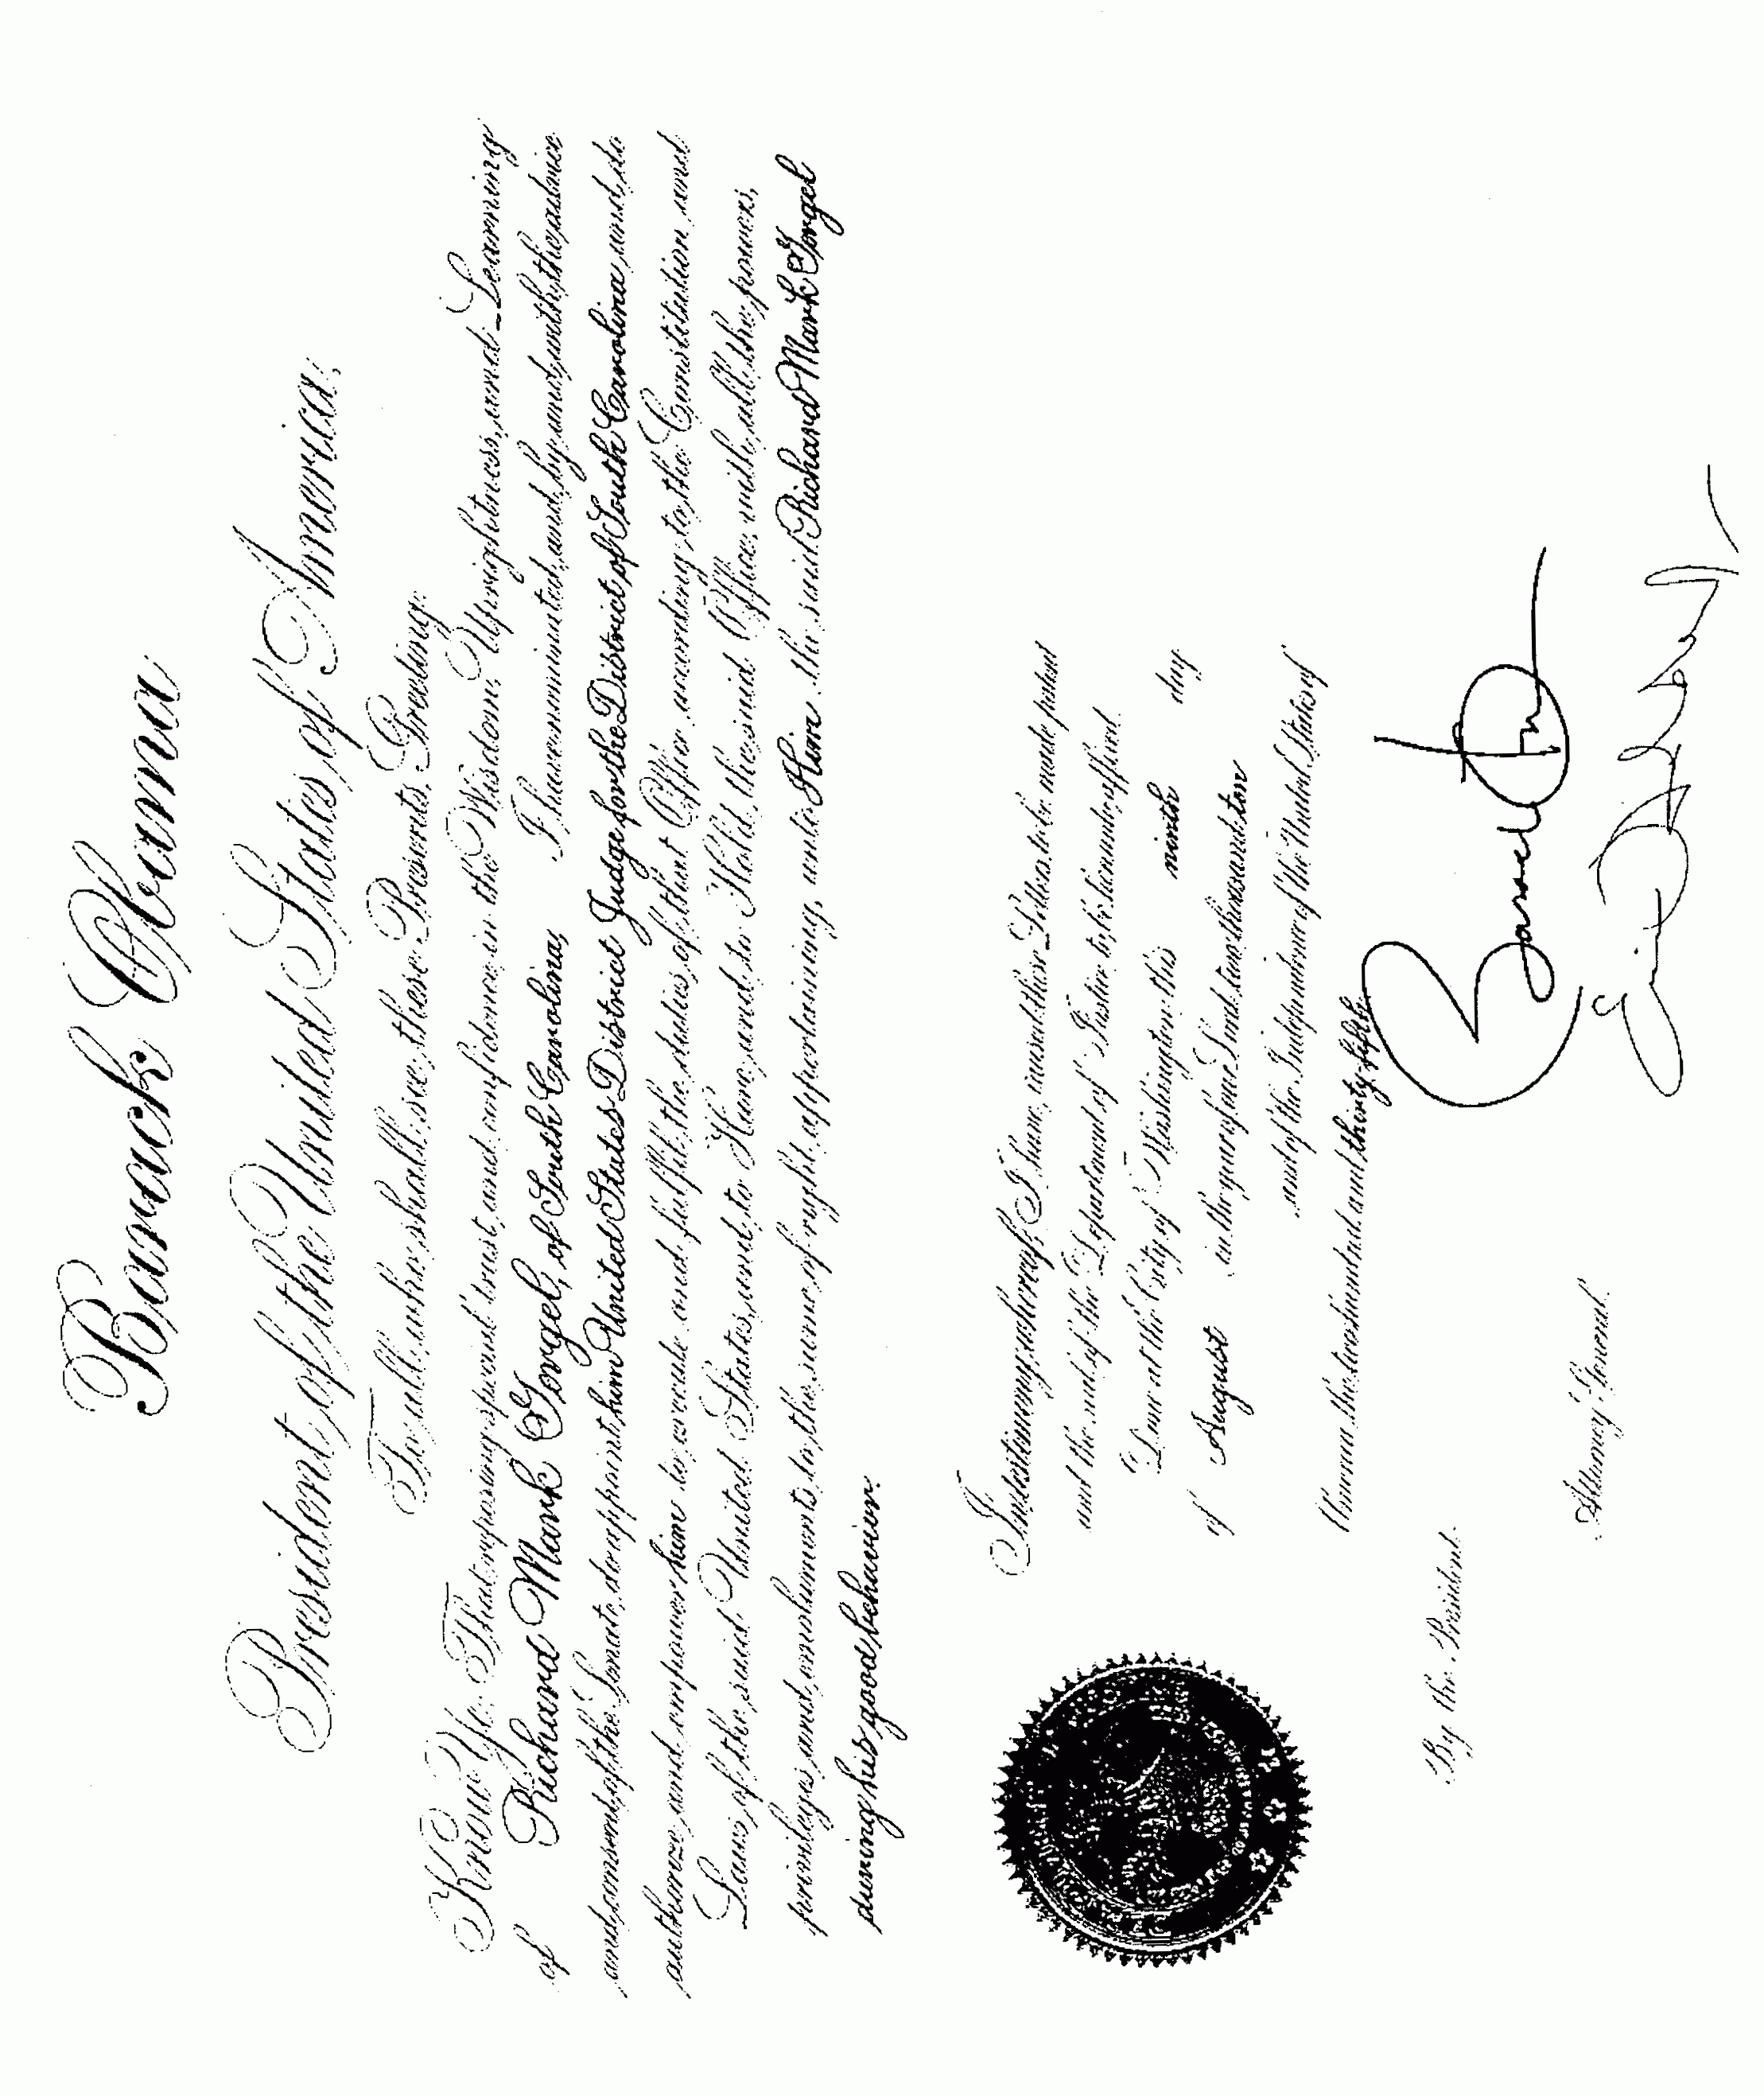 Barack Obama
President of the United States of America,
To all who shall see these Presents, Greeting:
Know Ye: That reposing special trust and confidence in the Wisdom, Uprightness, and Learning
of Richard Mark Gergel, of South Carolina, I have nominated, and, by and with the advice
and consent of the Senate, do appoint him United States District Judge for the District of South Carolina and do
authorize and empower him to execute and fulfil the duties of that Office according to the Constitution and
Laws of the said United States, and to Have and to Hold the said Office, with all the powers,
privileges and emoluments to the same of right appertaining, unto Him the said Richard Mark Gergel
during his good behavior.
In testimony whereof, I have caused these Letters to be made patent
and the seal of the Department of Justice to be hereunto affixed.
Done at the City of Washington this ninth day
of August in the year of our Lord two thousand ten
and of the Independence of the United States of
America the two hundred and thirty-fifth.
By the President:
Attorney General.